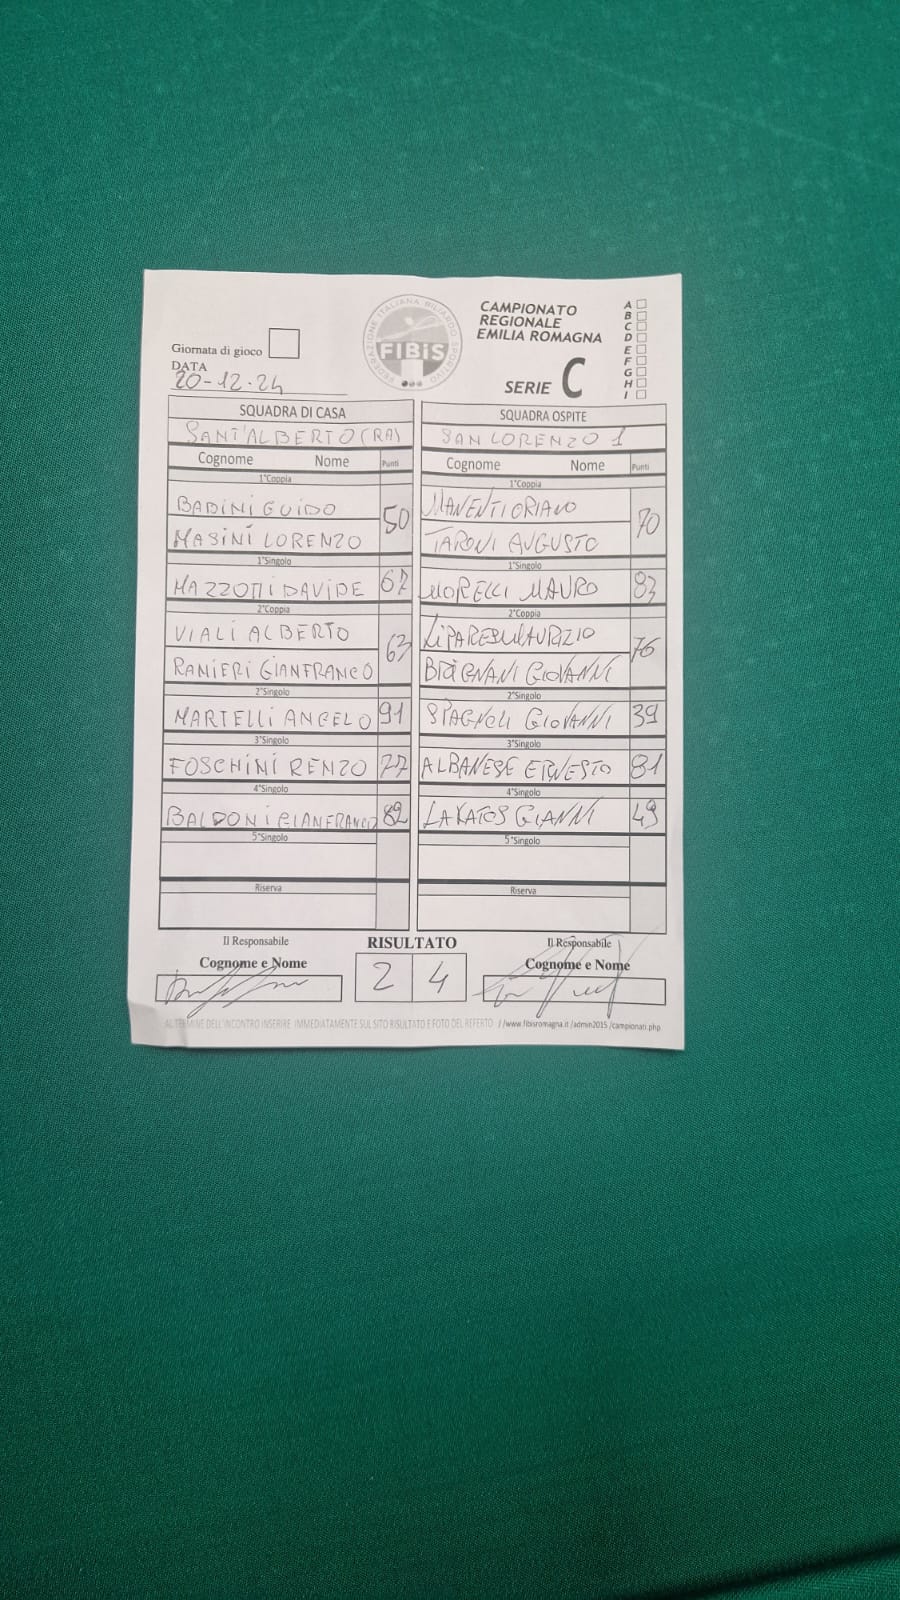 CAMPIONATO
REGIONALE
EMILIA ROMAGNA
SERIE C
A
B
C
D
E
F
G
H
I
FEDERAZIONE ITALIANA BILIARDO SPORTIVO
FIBiS
Giornata di gioco
DATA
20-12-24
SQUADRA DI CASA
SANT'ALBERTO (RA)
Cognome Nome Punti
1°Coppia
BADINI GUIDO
MASINI LORENZO
50
1°Singolo
MAZZOTTI DAVIDE 67
2°Coppia
VIALI ALBERTO
RANIERI GIANFRANCO
63
2°Singolo
MARTELLI ANGELO 91
3°Singolo
FOSCHINI RENZO 77
4°Singolo
BALDONI GIANFRANCO 82
5°Singolo
Riserva
SQUADRA OSPITE
SAN LORENZO 1
Cognome Nome Punti
1°Coppia
MANENTI ORIANO
TARONI AUGUSTO
70
1°Singolo
MORELLI MAURO 83
2°Coppia
LIPARESI MAURIZIO
GIOVANNI
76
2°Singolo
SPAGNOLI GIOVANNI 39
3°Singolo
ALBANESE ERNESTO 81
4°Singolo
LAKATOS GIANNI 49
5°Singolo
Riserva
Il Responsabile
Cognome e Nome
RISULTATO
2 4
Il Responsabile
Cognome e Nome
AL TERMINE DELL'INCONTRO INSERIRE IMMEDIATAMENTE SUL SITO RISULTATO E FOTO DEL REFERTO //www.fibisromagna.it/admin2015/campionati.php